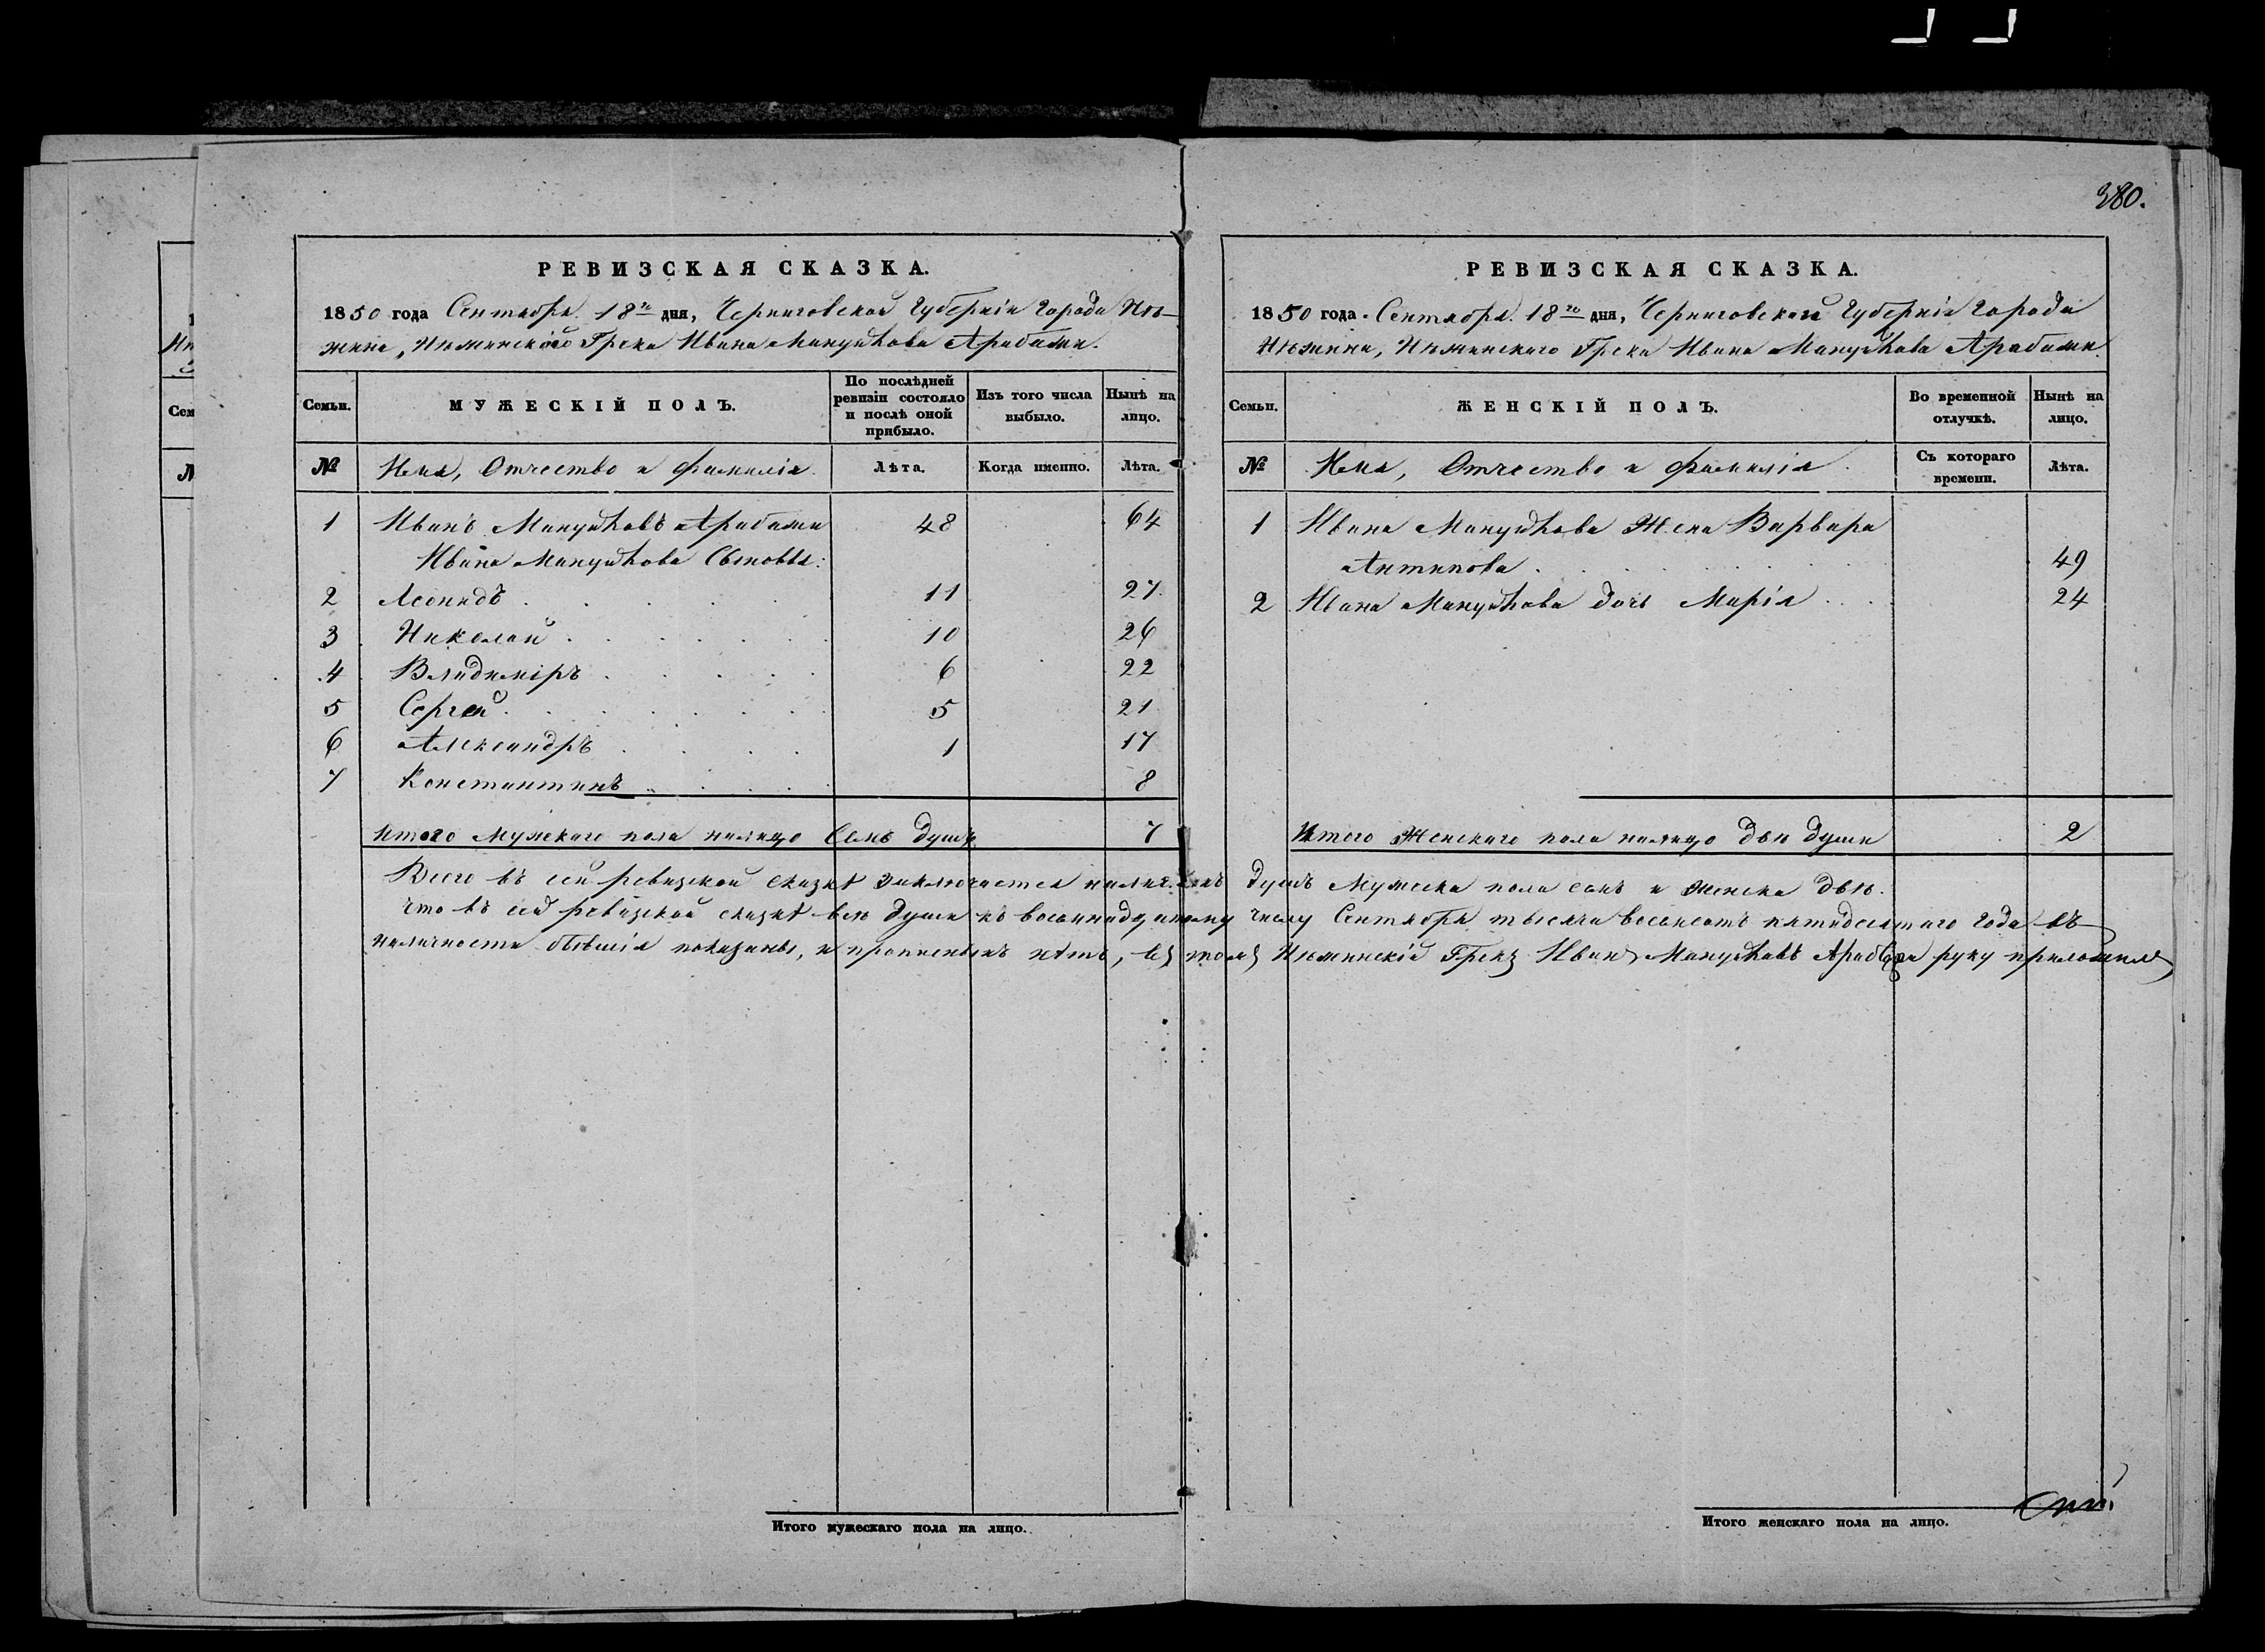 380.
РЕВИЗСКАЯ СКАЗКА.
1850 года Сентября 18го дня, Черниговской Губерніи Города Нѣ-
жина, Нѣжинскаго Грека Ивана Мануйлова Арабажи.
Семьи. МУЖЕСКІЙ ПОЛЪ. По послѣдней ревизіи состояло и послѣ оной прибыло. Изъ того числа выбыло. Нынѣ на лицо.
№ Имя, Отчество и Фамилія. Лѣта. Когда именно. Лѣта.
1 Иванъ Мануйловъ Арабажи 48 64
Ивана Мануйлова Сыновья:
2 Леонидъ 11 27
3 Николай 10 26
4 Владиміръ 6 22
5 Сергей 5 21
6 Александръ 1 17
7 Константинъ 8
Итого мужскаго пола налицо семь душъ 7
РЕВИЗСКАЯ СКАЗКА.
1850 года Сентября 18го дня, Черниговской Губерніи Города
Нѣжина, Нѣжинскаго Грека Ивана Мануйлова Арабажи.
Семьи. ЖЕНСКІЙ ПОЛЪ. Во временной отлучкѣ. Нынѣ на лицо.
№ Имя, Отчество и Фамилія. Съ котораго времени. Лѣта.
1 Ивана Мануйлова Жена Варвара
Антипова 49
2 Ивана Мануйлова дочь Марія 24
Итого Женскаго пола налицо двѣ души 2
Всего въ сей ревизской сказкѣ заключается душъ Мужеска пола семь и женска двѣ.
Что въ сей ревизской сказкѣ всѣ души къ восемнадцатому числу Сентября тысяча восемсотъ пятидесятаго года въ
наличности бывшія показаны, и прописныхъ нѣтъ, въ томъ Нѣжинскій Грекъ Иванъ Мануйловъ руку приложилъ
Итого мужескаго пола на лицо.
Итого женскаго пола на лицо.